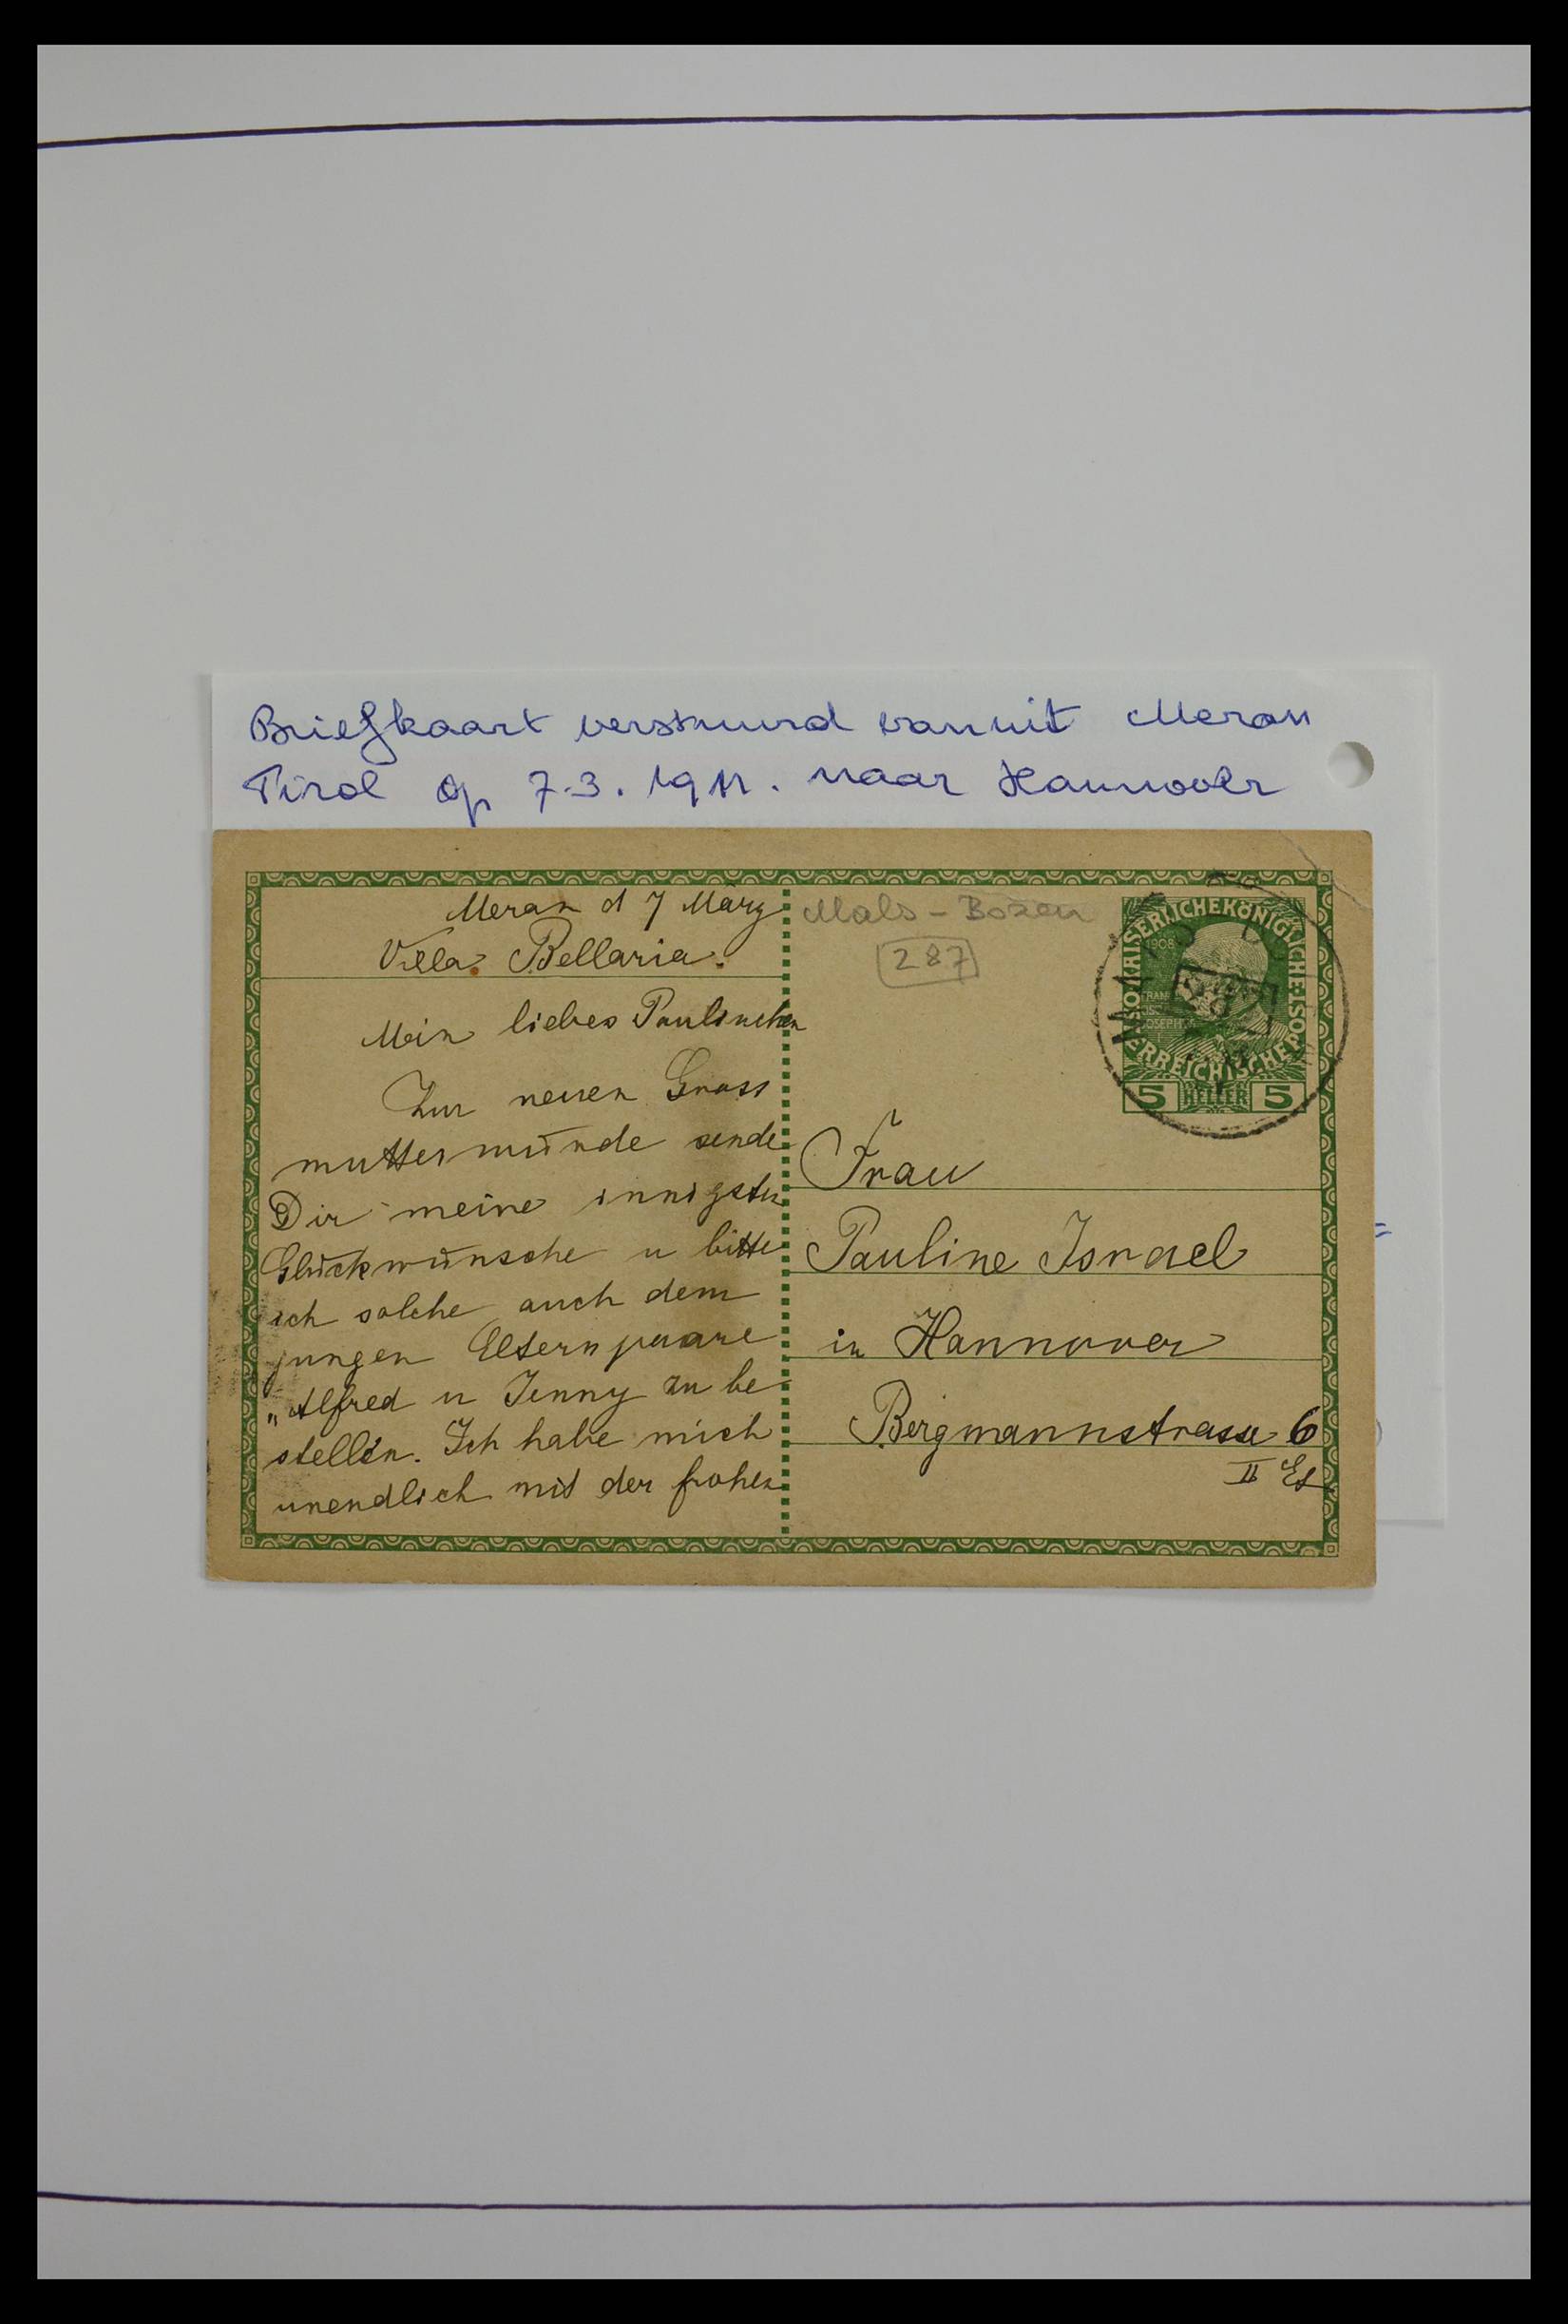 Briefkaart verstuurd vanuit Meran
Tirol op 7.3.1911. naar Hannover
Meran d 7 März
Villa Bellaria.
Mein liebes Paulinchen
Zur neuen Gross
mutterwürde sende
Dir meine innigsten
Glückwünsche u bitte
ich solche auch dem
jungen Elternpaare
„Alfred u Jenny zu be
stellen. Ich habe mich
unendlich mit der frohen
Mals - Bozen
287
KAISERLICHE KÖNIGLICHE ÖSTERREICHISCHE POST
1908
FRANZ
JOSEPH
5 HELLER 5
Frau
Pauline Israel
in Hannover
Bergmannstrasse 6
II Et